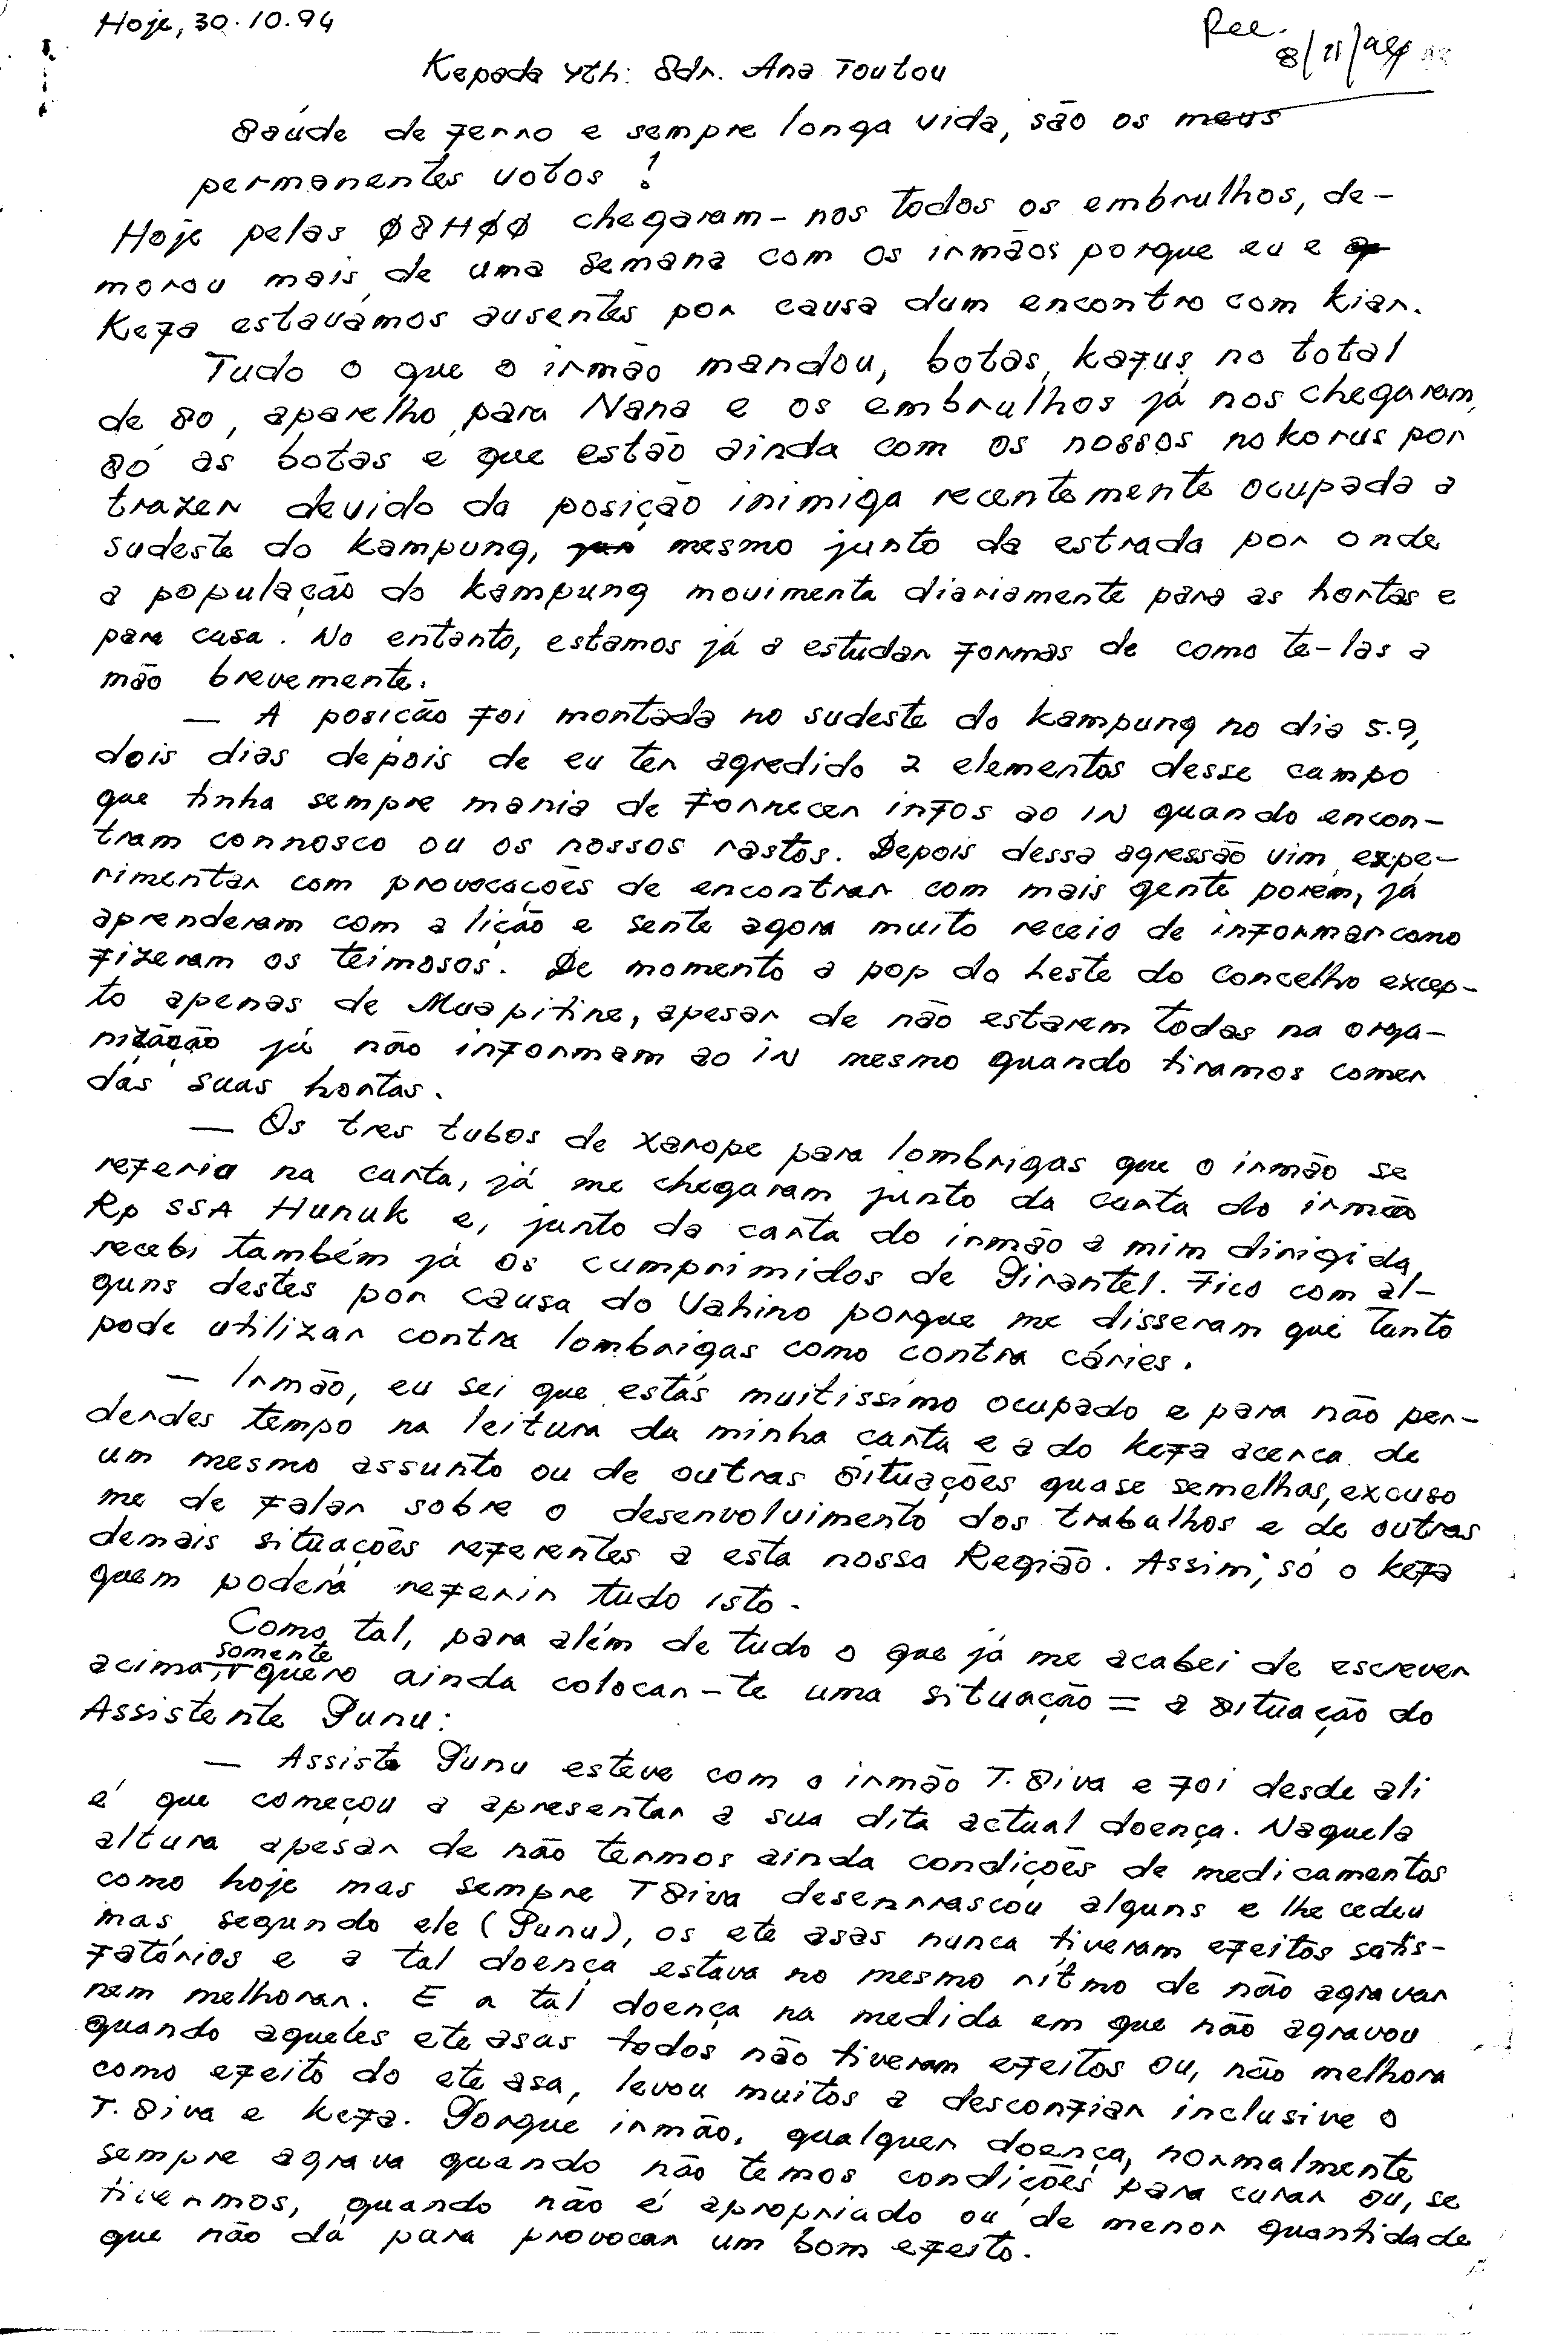 Hoje, 30.10.94
Rec.
8/11/94
Kepada Yth: Sdr. Ana Toutou
Saúde de ferro e sempre longa vida, são os meus
permanentes votos !
Hoje pelas 08H00 chegaram-nos todos os embrulhos, de-
morou mais de uma semana com os irmãos porque eu e
Kefa estavámos ausentes por causa dum encontro com Kiar.
Tudo o que o irmão mandou, botas, kafus no total
de 80, aparelho para Nana e os embrulhos já nos chegaram,
só as botas é que estão ainda com os nossos nokorus por
trazer devido da posição inimiga recentemente ocupada a
sudeste do kampung, mesmo junto da estrada por onde
a população do kampung movimenta diariamente para as hortas e
para casa. No entanto, estamos já a estudar formas de como te-las a
mão brevemente.
— A posição foi montada no sudeste do kampung no dia 5.9,
dois dias depois de eu ter agredido 2 elementos desse campo
que tinha sempre mania de fornecer infos ao IN quando encon-
tram connosco ou os nossos rastos. Depois dessa agressão vim expe-
rimentar com provocações de encontrar com mais gente porém, já
aprenderam com a lição e sente agora muito receio de informar como
fizeram os teimosos. De momento a pop do Leste do Concelho excep-
to apenas de Muapitine, apesar de não estarem todas na orga-
nização já não informam ao IN mesmo quando tiramos comer
das suas hortas.
— Os tres tubos de xarope para lombrigas que o irmão se
referia na carta, já me chegaram junto da carta do irmão
Rp SSA Hunuk e, junto da carta do irmão a mim dirigida,
recebi também já os cumprimidos de Pirantel. Fico com al-
guns destes por causa do Vahino porque me disseram que tanto
pode utilizar contra lombrigas como contra cáries.
— Irmão, eu sei que estás muitissímo ocupado e para não per-
derdes tempo na leitura da minha carta e a do Kefa acerca de
um mesmo assunto ou de outras situações quase semelhas, excuso
me de falar sobre o desenvolvimento dos trabalhos e de outras
demais situações referentes a esta nossa Região. Assim, só o Kefa
quem poderá referir tudo isto.
Como tal, para além de tudo o que já me acabei de escrever
somente
acima, quero ainda colocar-te uma situação = a situação do
Assistente Punu:
— Assiste Punu esteve com o irmão T. Siva e foi desde ali
é que começou a apresentar a sua dita actual doença. Naquela
altura apesar de não termos ainda condições de medicamentos
como hoje mas sempre T Siva desenrrascou alguns e lhe cedeu
mas, segundo ele (Punu), os ete asas nunca tiveram efeitos satis-
fatórios e a tal doença estava no mesmo rítmo de não agravar
nem melhorar. E a tal doença na medida em que não agravou
quando aqueles ete asas todos não tiveram efeitos ou, não melhora
como efeito do ete asa, levou muitos a desconfiar inclusive o
T. Siva e Kefa. Porque irmão, qualquer doença, normalmente
sempre agrava quando não temos condições para curar ou, se
tivermos, quando não é apropriado ou de menor quantidade
que não dá para provocar um bom efeito.